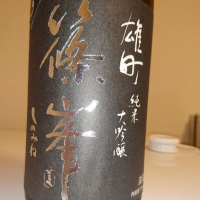 雄町
純米
大吟醸
篠峯
しのみね